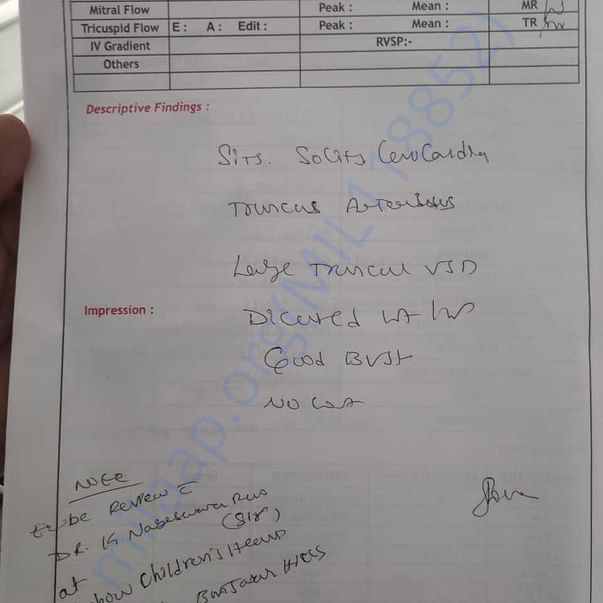 Mitral Flow Peak : Mean : MR
Tricuspid Flow E : A : Edit : Peak : Mean : TR
IV Gradient RVSP:-
Others
Descriptive Findings :
Situs Solitus Levocardia
Truncus Arteriosus
Large Truncal VSD
Impression :
Dilated LA LV
Good BVSF
NO COA
NOTE
to be Review
DR. K. Nageswara Rao
(Sir)
at Children's Heart
Banjara Hills
milaap.org(MIL118852)